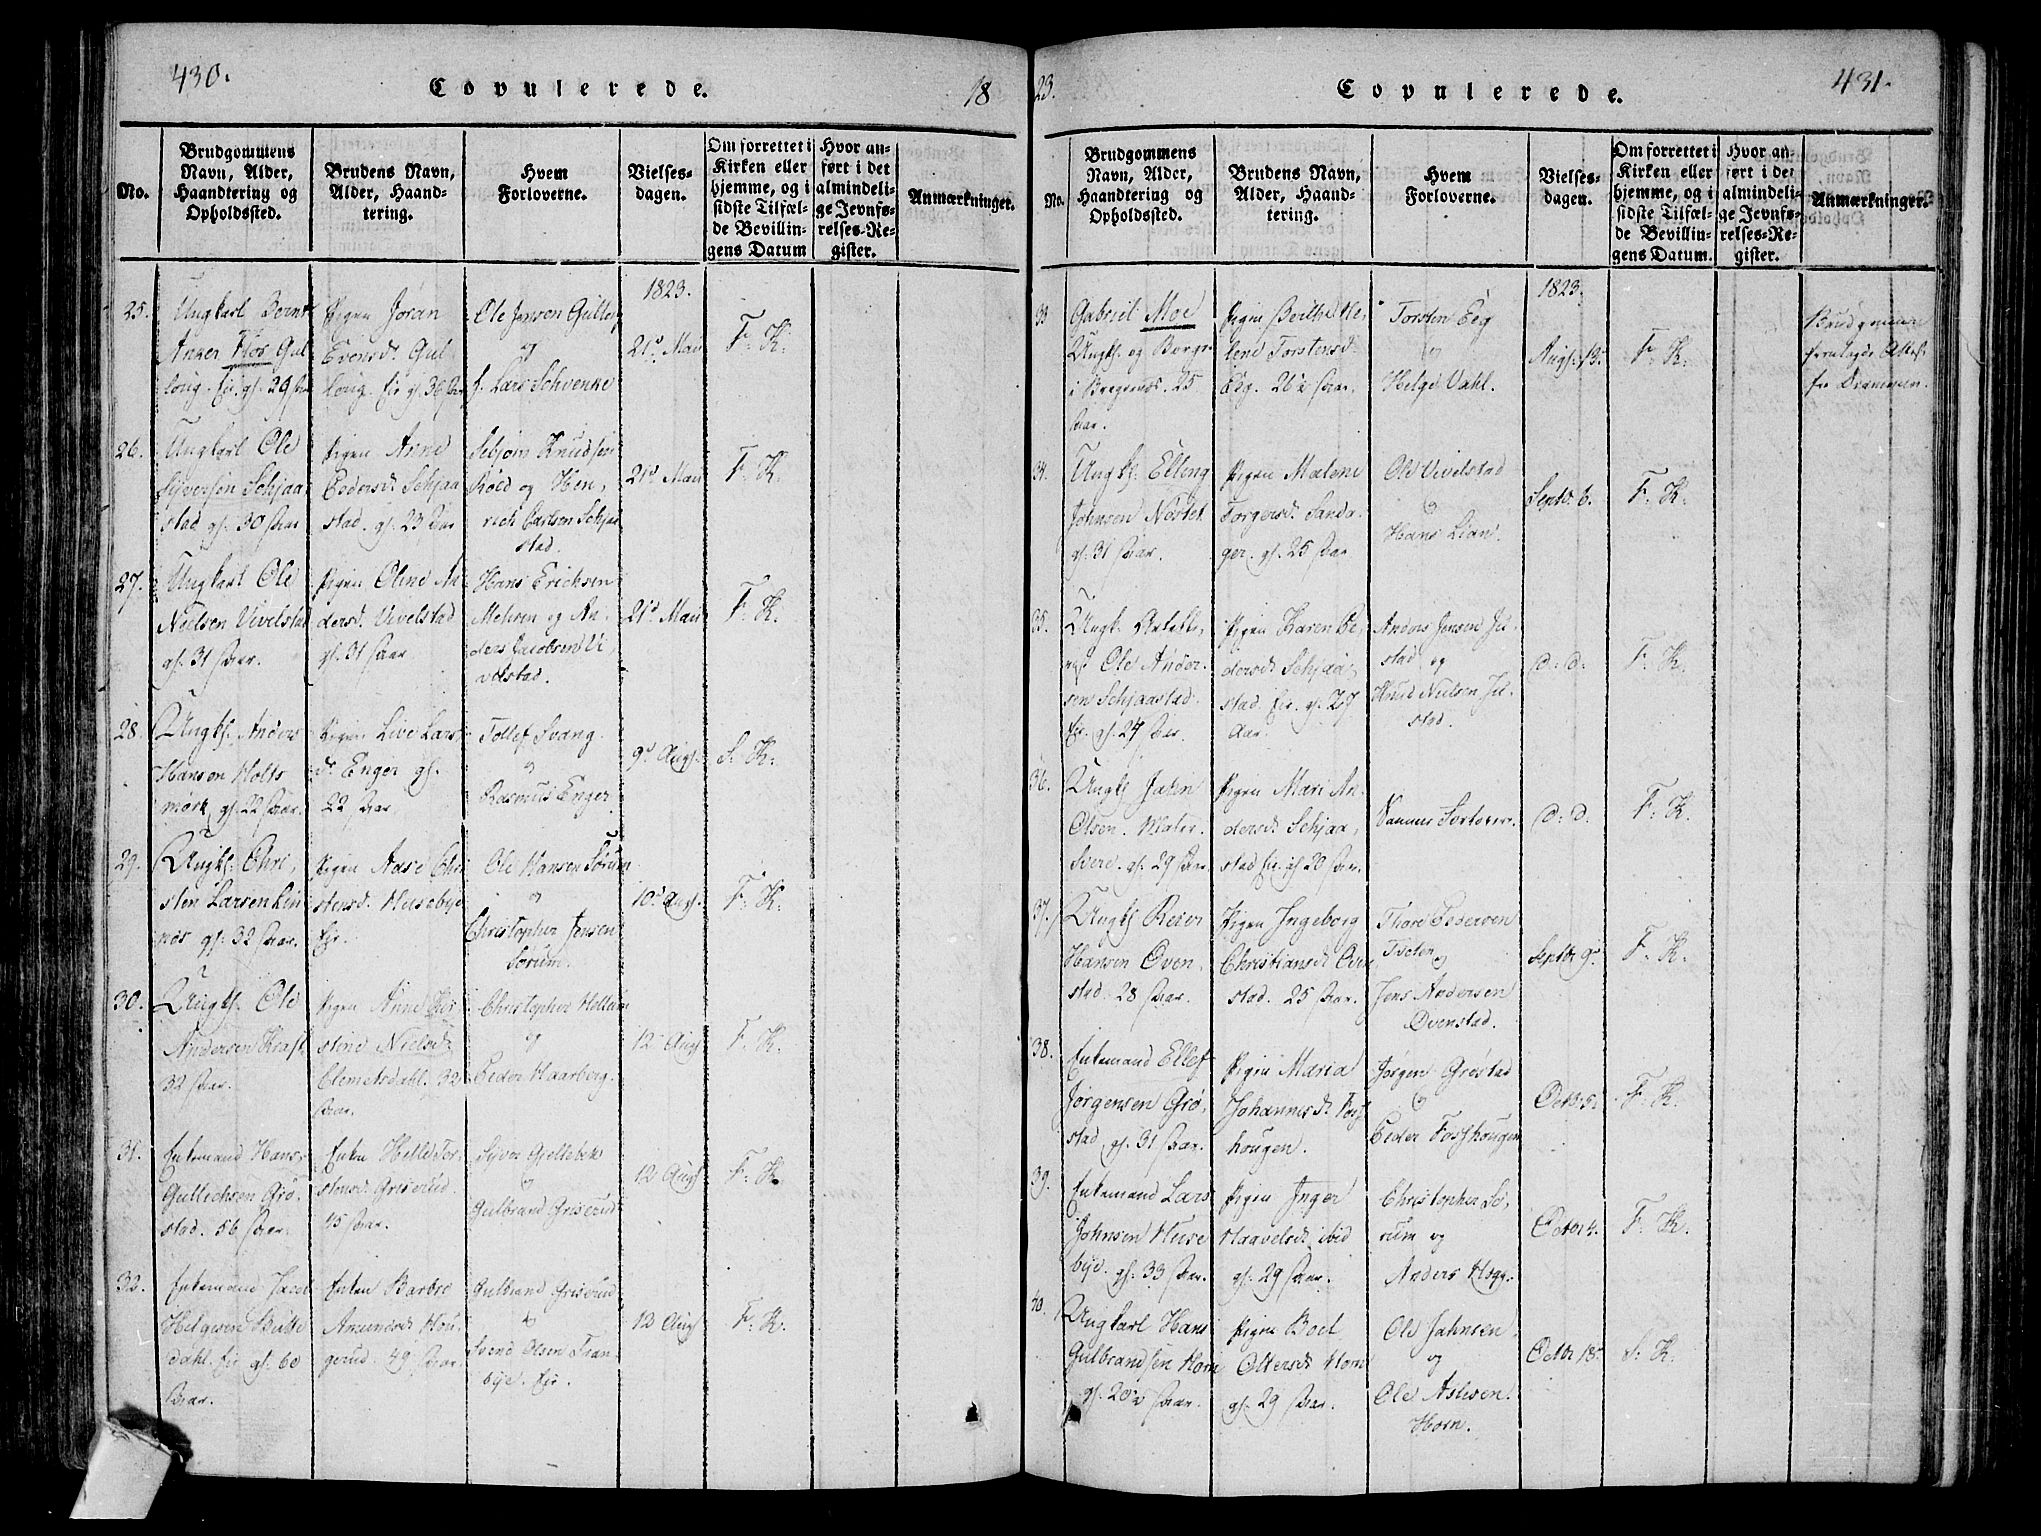 430.
Copulerede.
18
No.
Brudgommens
Navn, Alder,
Haandtering og
Opholdssted.
Brudens Navn,
Alder, Haand-
tering.
Hvem
Forloverne.
Vielses-
dagen.
Om forrettet i
Kirken eller
hjemme, og i
sidste Tilfæl-
de Bevillin-
gens Datum
Hvor an-
ført i det
almindeli-
ge Jevnfø-
relses-Re-
gister.
Anmærkninger.
1823.
25.
Ungkarl Bernt
Anker Hos Gul
loug. Eir. gl. 29 Aar
Pigen Jøran
Evensd. Gul
loug. Eir gl. 36 Aar
Ole Jensen Gulloug
og
f. Lars Schvenke
21d Mai
F. K.
26.
Ungkarl Ole
Syversøn Schjaa
stad gl. 30 Aar
Pigen Anne
Pedersd. Schjaa
stad. gl. 23 Aar
Sebjørn Knudsen
Røed og Hen,
rich Carlsen Schjaa
stad.
21d Mai
F. K.
27.
Ungkarl Ole
Nielsen Vivelstad
gl. 31 Aar.
Pigen Oline An
dersd. Vivelstad
gl. 31 Aar
Hans Erichsen
Mehren og An,
ders Jacobsen Vi,
velstad.
21d Mai
F. K.
28.
Ungk. Anders
Hansen Holts
mørk gl. 22 Aar.
Pigen Live Lars
d. Enger gl.
22 Aar
Tollef Svang
og
Rasmus Enger
9d Aug.
S. K.
29.
Ungk. Chri,
sten Larsen Lin
nes gl. 32 Aar.
Pigen Aase Chri
stensd. Husebye
Eir.
Ole Hansen Sørum
og
Christopher Jensen
Sørum.
10d Aug.
F. K.
30.
Ungk. Ole
Andersen Kraft
32 Aar.
Pigen Anne Kir
stine Nielsd.
Clemetsdahl. 32
Aar.
Christopher Hellum
og
Peder Haarberg.
12 Aug.
F. K.
31.
Enkemand Hans
Gullichsen Grø,
stad. 56 Aar.
Enken Helle Tor
stensd. Griserud.
45 Aar.
Syver Gjellebek
og
Gulbrand Griserud
12 Aug.
F. K.
32.
Enkemand Jacob
Helgesen Butte
dahl. Eir gl. 60
Aar.
Enken Barbro
Amundsd. Hou
gerud. 49 Aar.
Gulbrand Griserud
&
Svend Olsen Tran
bye. Eir.
12 Aug.
F. K.
23.
Copulerede.
431.
No.
Brudgommens
Navn, Alder,
Haandtering og
Opholdssted.
Brudens Navn,
Alder, Haand-
tering.
Hvem
Forloverne.
Vielses-
dagen.
Om forrettet i
Kirken eller
hjemme, og i
sidste Tilfæl-
de Bevillin-
gens Datum.
Hvor an-
ført i det
almindeli-
ge Jevnfø-
relses-Re-
gister.
Anmærkninger.
1823.
33
Gabriel Moe
Ungk. og Borger
i Bragernæs. 25
Aar.
Pigen Berthe He,
lene Torstensd.
Eeg. 26½ Aar.
Torsten Eeg
og
Helge Vahl.
Aug. 13.
F. K.
Brudgommen
fremlagde Attest
fra Drammen.
34.
Ungk. Elling
Johnsen Nøstet.
gl. 31 Aar.
Pigen Malene
Torgersd. Sanda
ger. gl. 25 Aar
Ole Vivelstad
og
Hans Lian.
Septr. 6.
F. K.
35.
Ungk.
Ole Ander
sen Schjaastad.
Eir. gl. 24 Aar.
Pigen Karen Pe,
dersd. Schjaa,
stad. Eir. gl. 27
Aar.
Anders Jensen Ju,
stad og
Knud Nielsen Ju,
stad.
d: d:
F. K.
36.
Ungk. John
Olsen.
Svere. gl. 29 Aar.
Pigen Mari An,
dersd. Schjaa,
stad Eir. gl 20 Aar.
Samme Forlovere.
d: d.
F. K.
37.
Ungk. Reier
Hansen Oven,
stad. 28 Aar.
Pigen Ingeborg
Christiansd. Oven
stad. 25 Aar.
Thore Pedersen
Tveten og
Jens Andersen
Ovenstad.
Septbr 9d
F. K.
38.
Enkemand Ellef
Jørgensen Grø,
stad, gl. 31 Aar.
Pigen Maria
Johannesd. Fos
hougen.
Jørgen Grøstad
og
Peder Fosshougen
Octb. 5
F. K.
39.
Enkemand Lars
Johnsen Huse
bye. gl. 33 Aar.
Pigen Inger
Haavelsd. ibid
gl. 29 Aar.
Christopher Sø,
rum og
Anders Hagg.
Octbr 4.
F. K.
40.
Ungkarl Hans
Gulbrandsen Horn
gl. 20½ Aar.
Pigen Boel
Ottersd. Horn
gl. 29 Aar.
Ole Jahnsen
og
Ole Aslesen
Horn.
Octbr 18.
S. K.